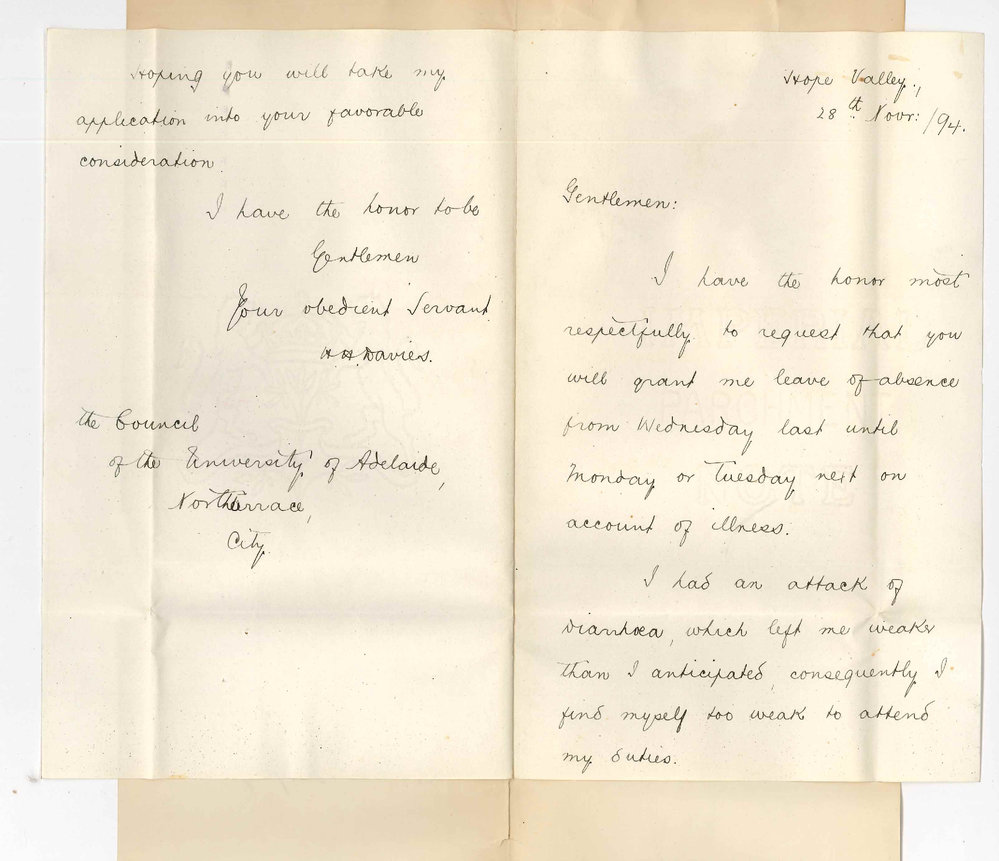 Hope Valley,
28th Novr: /94.
Gentlemen:
I have the honor most
respectfully to request that you
will grant me leave of absence
from Wednesday last until
Monday or Tuesday next on
account of illness.
I had an attack of
diarrhœa, which left me weaker
than I anticipated, consequently I
find myself too weak to attend
my duties.
Hoping you will take my
application into your favorable
consideration.
I have the honor to be
Gentlemen
Your obedient Servant
H. H. Davies.
the Council
of the University of Adelaide,
North Terrace,
City.